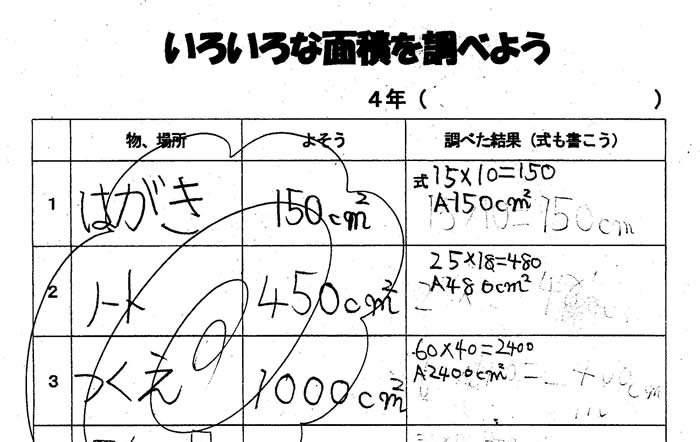 いろいろな面積を調べよう
4年（　　　）
物、場所 よそう 調べた結果（式も書こう）
1 はがき 150cm² 式 15×10=150
A150cm²
2 ノート 450cm² 25×18=480
A480cm²
3 つくえ 1000cm² 60×40=2400
A2400cm²